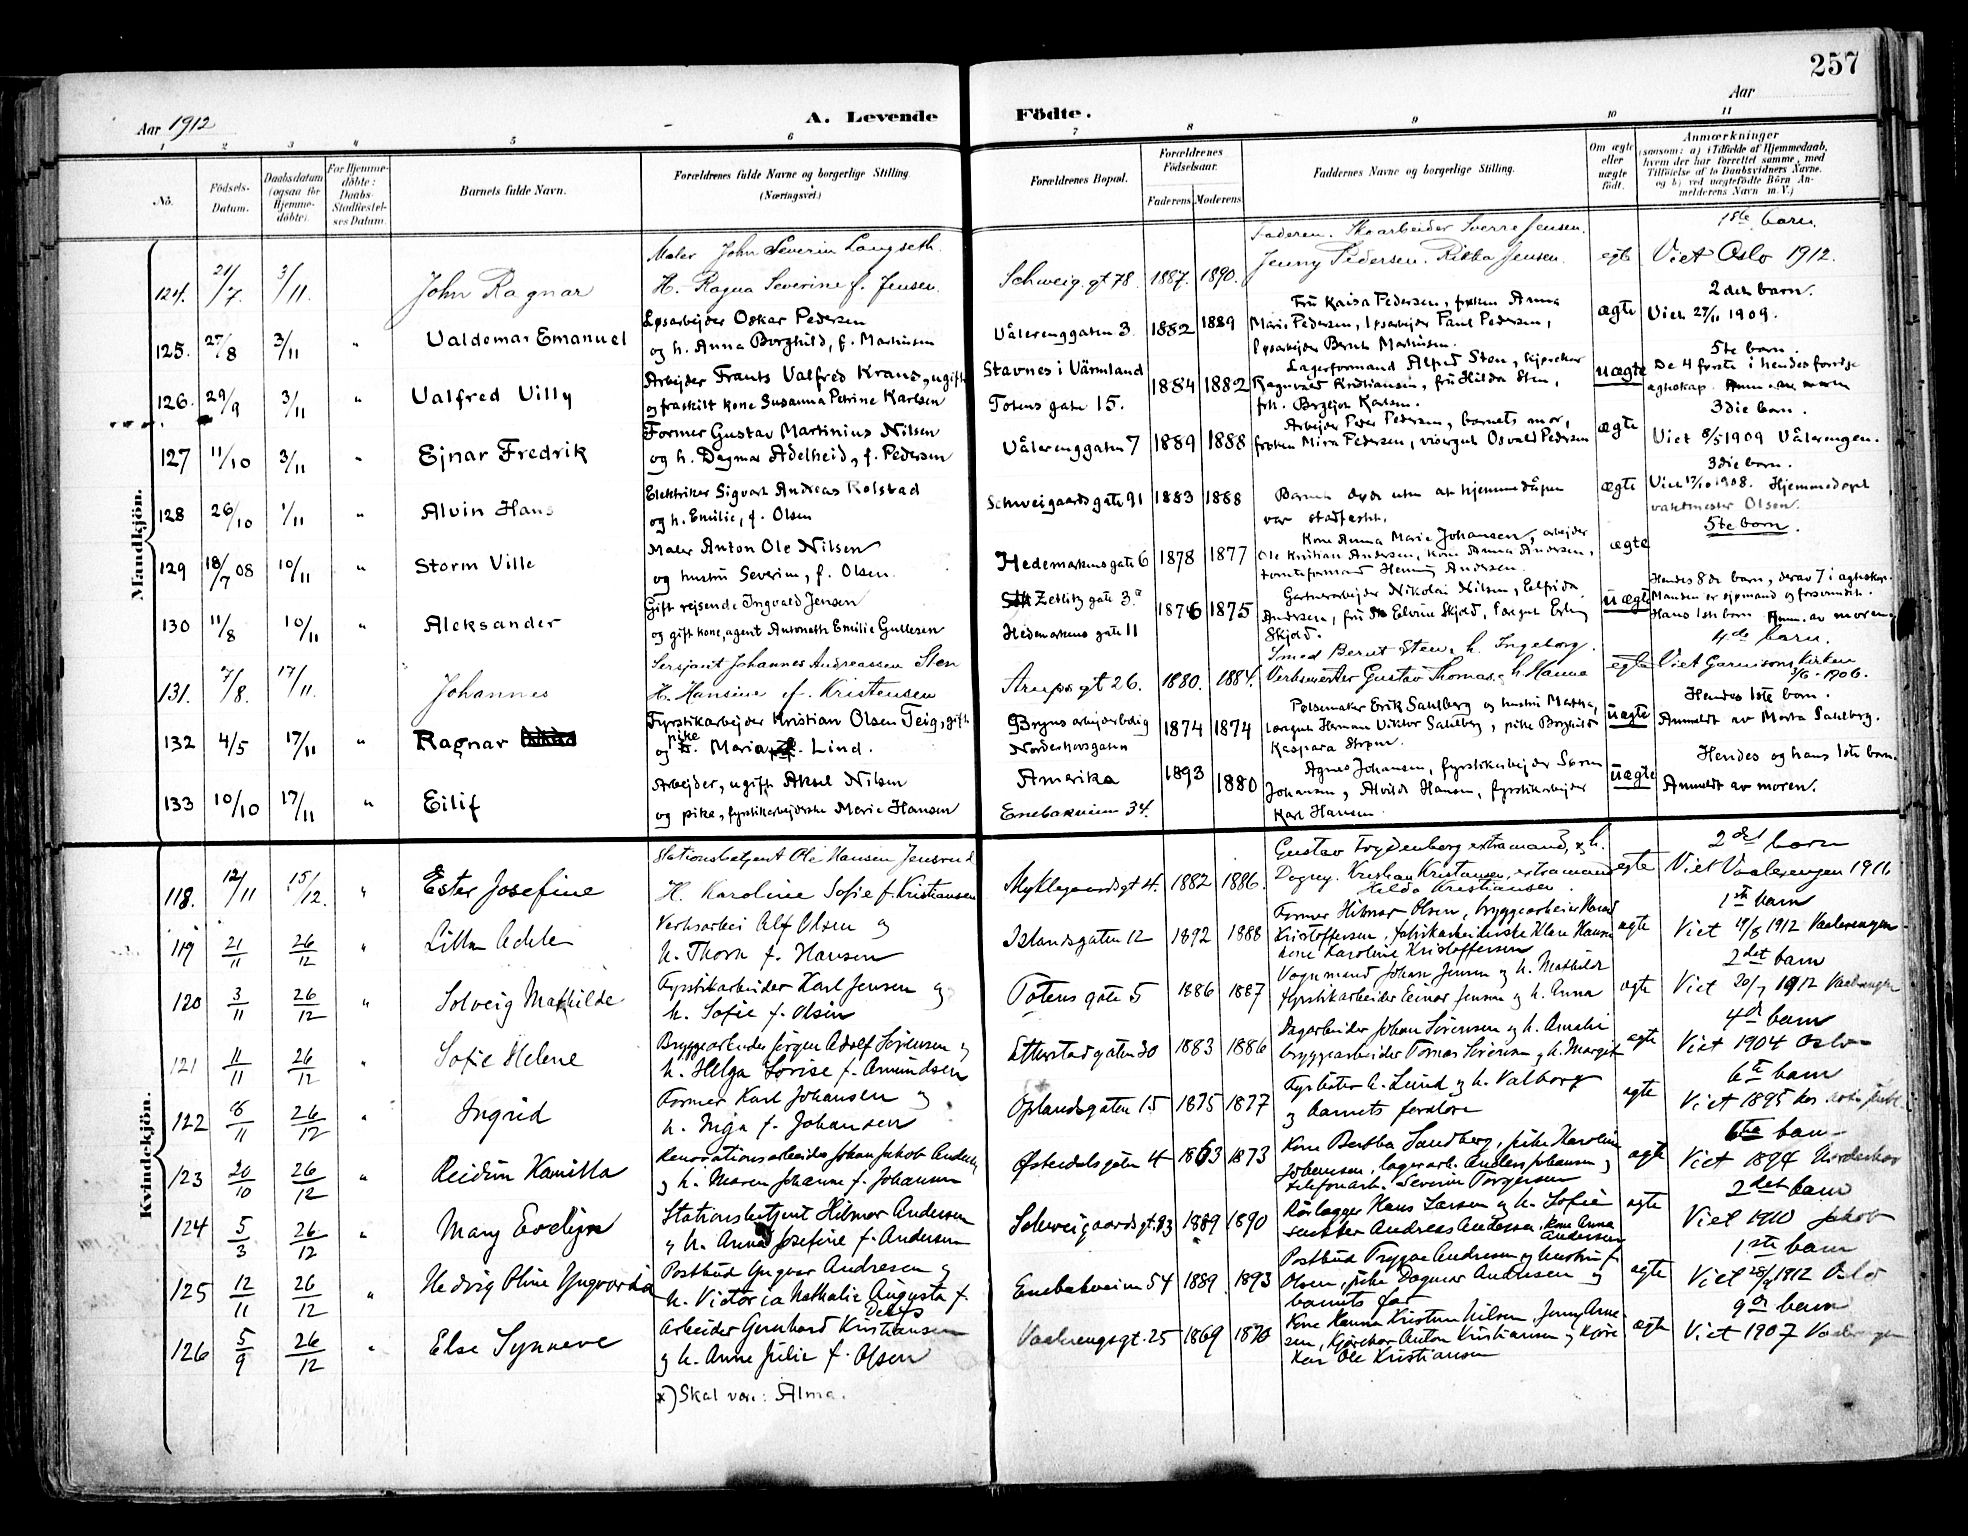 257
Aar 1912
A. Levende
Födte.
Aar
1 2 3 4 5 6 7 8 9 10 11
No.
Födsels-Datum.
Daabsdatum (ogsaa for Hjemmedöbte).
For Hjemmedöbte: Daabs Stadfæstelses Datum.
Barnets fulde Navn.
Forældrenes fulde Navne og borgerlige Stilling (Næringsvei.)
Forældrenes Bopæl.
Forældrenes Födselsaar.
Faderens Moderens
Faddernes Navne og borgerlige Stilling.
Om ægte eller uægte födt.
Anmærkninger
(saasom: a) i Tilfælde af Hjemmedaab, hvem der har forrettet samme, med Tilföielse af to Daabsvidners Navne, og b) ved uægtefödte Börn Anmelderens Navn m. V.)
Mandkjön.
124. 21/7 3/11. John Ragnar
Maler John Severin Langseth.
H. Ragna Severine f. Jensen.
Schweig. gt 78. 1887. 1890.
Faderen. Skoarbeider Sverre Jensen.
Jenny Pedersen. Rikka Jensen.
egte
1ste barn.
Viet Oslo 1912.
125. 27/8 3/11 " Valdemar Emanuel
Løsarbejder Oskar Pedersen
og h. Anna Borghild, f. Martinsen
Vålerenggaten 3. 1882 1889
Fru Kaisa Pedersen, frøken Anna
Marie Pedersen, løsarbejder Paul Pedersen,
løsarbejder Bernt Martinsen.
ægte
2det barn.
Viet 27/11 1909.
126. 29/9 3/11 " Valfred Villy
Arbejder Frants Valfred Krans, ugift
og fraskilt kone Susanna Petrine Karlsen
Stavnes i Värmland
Totens gate 15.
1884 1882
Lagerformand Alfred Sten, kjørekar
Ragnvald Kristiansen, fru Hilda Sten,
frk. Bergljot Karlsen.
uægte
5te barn.
De 4 første i hendes forrige
egteskap. Anm. av moren
127 11/10 3/11 " Ejnar Fredrik
Former Gustav Martinius Nilsen
og h. Dagmar Adelheid, f. Pedersen
Vålerenggaten 7 1889 1888
Arbejder Peder Pedersen, barnets mor,
frøken Mira Pedersen, visergut Osvald Pedersen
ægte
3die barn.
Viet 8/5 1909 Vålerengen.
128 26/10 1/11 " Alvin Hans
Elektriker Sigvart Andreas Rolstad
og h. Emilie, f. Olsen
Schweigaardsgate 91 1883 1888
Barnet døde uten at hjemmedåpen
var stadfestet.
ægte
3die barn.
Viet 17/10 1908. Hjemmedøpt
vaktmester Olsen.
129 18/7 08 10/11 " Storm Ville
Maler Anton Ole Nilsen
og hustru Severine, f. Olsen.
Hedemarkens gate 6 1878 1877
Kone Anna Marie Johansen, arbejder
Ole Kristian Andersen, kone Anna Andersen,
tomteformand Henning Andersen.
ægte
5te barn.
130 11/8 10/11 " Aleksander
Gift rejsende Ingvald Jensen
og gift kone, agent Antonette Emilie Gullesen
Zetlitz gate 3.
Hedemarkens gate 11
1876 1875
Gartnerarbejder Nikolai Nilsen, Elfrida
Andersen, fru Edvine Skjold, læregut Erling
Skjold.
uægte
Hendes 8de barn, derav 7 i egteskap.
Manden er sjømand og forsvundet.
Hans 1ste barn Anm. av moren.
131. 7/8. 17/11. Johannes
Sersjant Johannes Andreassen Sten
H. Hansine f. Kristensen
Arups gt 26. 1880. 1884.
Smed Bernt Sten, h. Ingeborg.
Verksmester Gustav Thomas, h. Hanna
egte
4de barn.
Viet Garnisons Kirken
1906.
132 4/5 17/11 " Ragnar
Fyrstikarbejder Kristian Olsen Teig, gift
og pike Maria Lind.
Bryns arbejderbolig
Norderhovsgaten
1874 1874
Pølsemaker Erik Sahlberg og hustru Martha,
læregut Herman Viktor Sahlberg, pike Borghild
Kaspara Strøm.
uægte
Hendes 1ste barn.
Anmeldt av Marta Sahlberg.
133 10/10 17/11 " Eilif
Arbejder, ugift Aksel Nilsen
og pike, fyrstikarbejderske Marie Hansen
Amerika
Enebakveien 34.
1893 1880
Agnes Johansen, fyrstikarbejder Søren
Johansen, Alvilde Hansen, fyrstikarbejder
Karl Hansen
uægte
Hendes og hans 1ste barn.
Anmeldt av moren.
Kvindekjön.
118. 12/11 15/12. " Ester Josefine
Stationsbetjent Ole Hansen Jensrud
H. Karoline Sofie f. Kristiansen
Myklegaardsgt 4. 1882 1886.
Gustav Frydenberg extramand, & h.
Dagny. Kristian Kristiansen, extramand
Hilda Kristiansen.
egte
2det barn
Viet Vaalerengen 1911
119 21/11 26/12 "
Verksarbei Alf Olsen og
h. Thora f. Hansen
Islandsgaten 12 1892 1888
Former Hilmar Olsen, bryggearbeider Harald
Kristoffersen, fabrikarbeiderske Klara Hansen
kone Karoline Kristoffersen
ægte
1ste barn
Viet 18/8 1912 Vaalerengen.
120 3/11 26/12 " Solveig Mathilde
Fyrstikarbeider Karl Jensen og
h. Sofie f. Olsen
Totens gate 5 1886 1887
Vognmand Johan Jensen og h. Mathilde
fyrstikarbeider Einar Jensen og h. Anna
ægte
2det barn
Viet 20/7 1912 Vaalerengen
121 11/11 26/12 " Sofie Helene
Bryggearbeider Jørgen Adolf Sørensen og
h. Helga Lovise f. Amundsen
Etterstadgaten 30 1883 1886
Dagarbeider Johan Sørensen og h. Amalie
bryggearbeider Tomas Sørensen og h. Margit
egte
4de barn
Viet 1904 Oslo
122 8/11 26/12 " Ingrid
Former Karl Johansen og
h. Inga f. Johansen
Oplandsgaten 15 1875 1877
Fyrbøter A. Lund og h. Valborg
og barnets forældre
ægte
6te barn
Viet 1895
123 20/10 26/12 " Reidun Kamilla
Renovationsarbeider Johan Jakob Andersen
og h. Maren Johanne f. Johansen
Østerdalsgaten 4 1863 1873
Kone Bertha Sandberg, pike Karoline
Johansen, lagerarb. Anders Johansen og
telefonarb. Severin Torgersen
ægte
6te barn
Viet 1894 Norderhov
124 5/3 26/12 " Mary Evelyn
Stationsbetjent Hilmar Andersen
og h. Anna Josefine f. Andersen
Schweigaardsgt. 83 1889 1890
Rørlægger Hans Larsen og h. Sofie
snekker Andreas Andersen, kone Anna
Andersen
ægte
2det barn
Viet 1910 Jakob
125 12/11 26/12 " Hedvig Oline Yngvarda
Postbud Yngvar Andresen og
h. Victoria Nathalie Augusta f.
Enebakveien 54 1889. 1893
Postbud Trygve Andresen og hustru f.
Olsen, pike Dagmar Andresen og
barnets far
ægte
1ste barn
Viet 1912 Oslo
126 5/9 26/12 " Else Synneve
Arbeider Gernhard Kristiansen
og h. Anne Julie f. Olsen
Vaalerengsgt. 25 1869 1870
Kone Hanna Kristine Nilsen Jenny Arne-
sen, kjørekar Anton Kristiansen og kjøre-
kar Ole Kristiansen
ægte
9de barn
Viet 1907 Vaalerengen
x) Skal være: Alma.